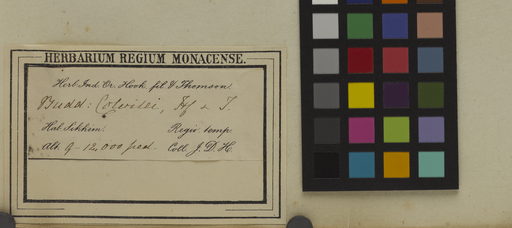 HERBARIUM REGIUM MONACENSE.
Herb. Ind. Or. Hook. fil. & Thomson.
Budd: Colvilei, Hf & T.
Hab. Sikkim. Regio temp.
Alt. 9-12,000 ped. Coll. J. D. H.